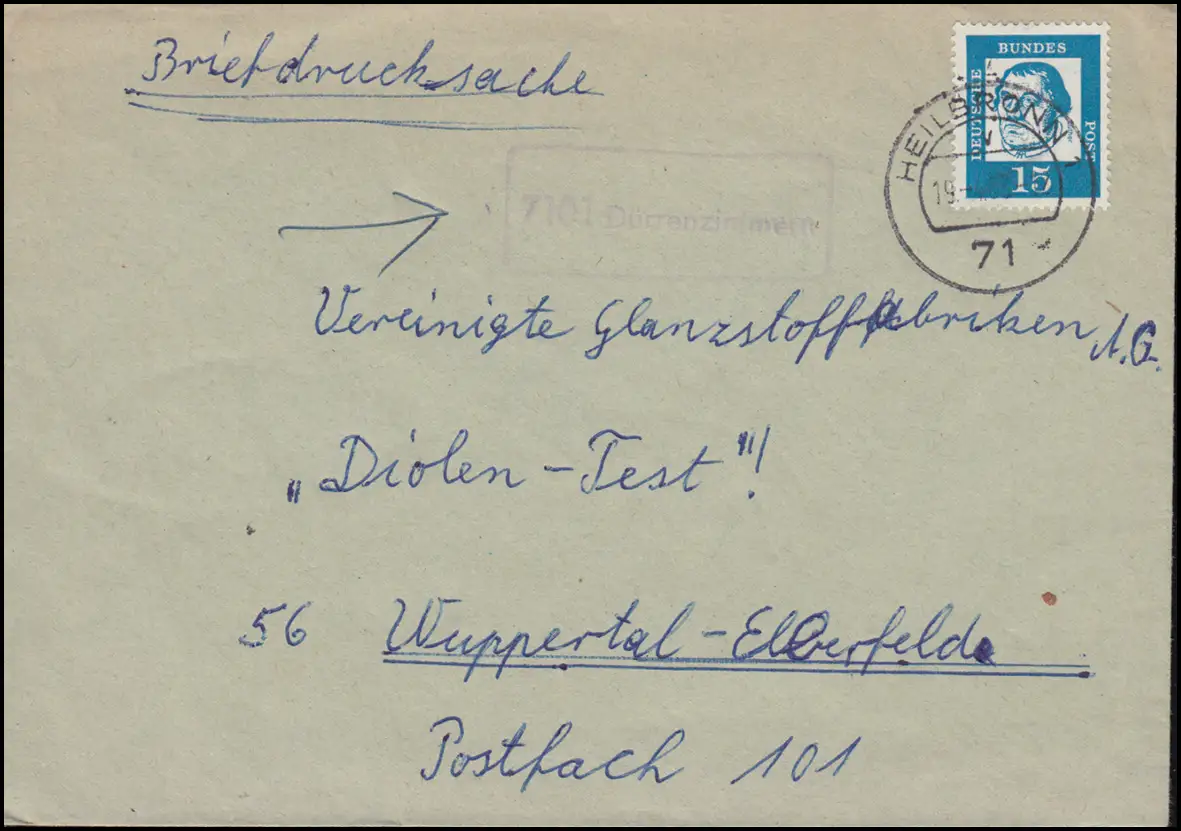 Briefdrucksache
BUNDES
DEUTSCHE
POST
15
HEILBRONN 1
19
71
7101 Dürrenzimmern
Vereinigte Glanzstofffabriken A.G.
„Diolen-Test"!
56 Wuppertal-Elberfeld
Postfach 101